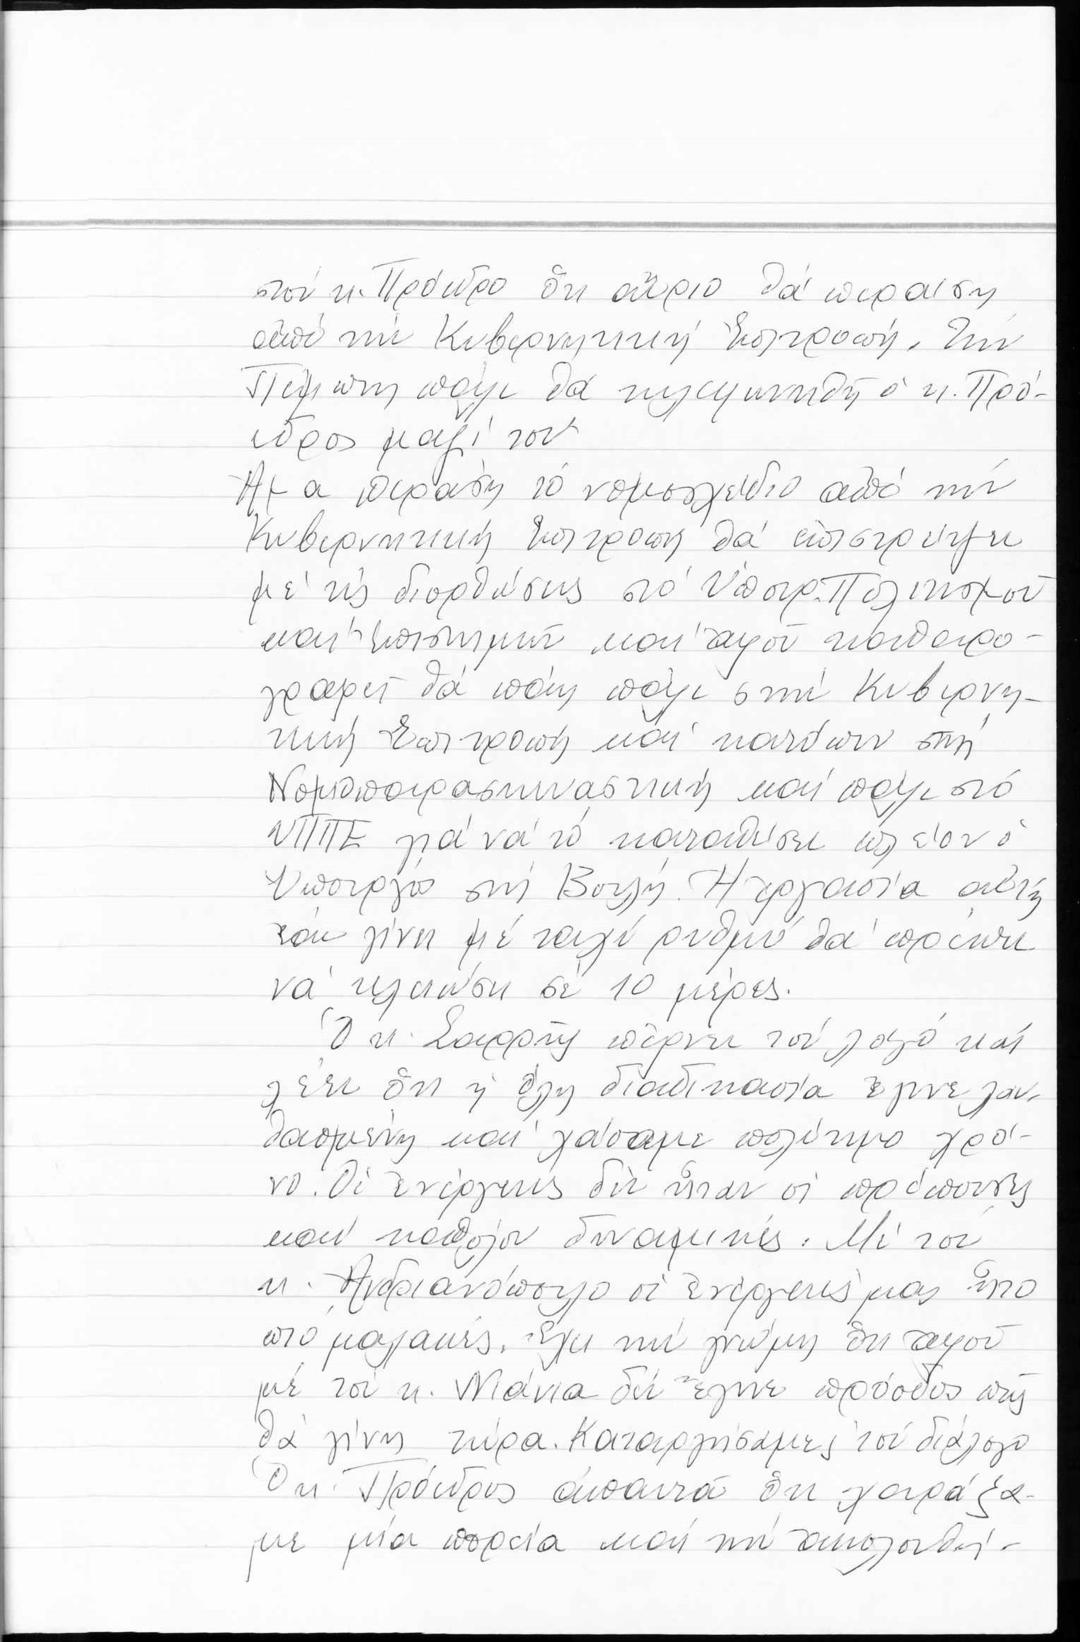 στόν κ. Πρόεδρο ὅτι αὔριο θά περάση
ἀπό τήν Κυβερνητική Ἐπιτροπή. Τήν
Πέμπτη πάλι θά τηλεφωνηθῆ ὁ κ. Πρό-
εδρος μαζί του
Ἅμα περάση τό νομοσχέδιο ἀπό τήν
Κυβερνητική Ἐπιτροπή θά ἐπιστρέψει
μέ τίς διορθώσεις στό Ὑπουρ. Πολιτισμοῦ
καί Ἐπιστημῶν καί ἀφοῦ καθαρο-
γραφεῖ θά πάη πάλι στήν Κυβερνη-
τική Ἐπιτροπή καί κατόπιν στή
Νομοπαρασκευαστική καί πάλι στό
ΥΠΠΕ γιά νά τό καταθέσει πλέον ὁ
Ὑπουργός στή Βουλή. Ἡ ἐργασία αὐτή
ἐάν γίνει μέ ταχύ ρυθμό θά πρέπει
νά τελειώσει σέ 10 μέρες.
Ὁ κ. Σαρρῆς παίρνει τόν λόγο καί
λέει ὅτι ἡ ὅλη διαδικασία ἔγινε λαν-
θασμένη καί χάσαμε πολύτιμο χρό-
νο. Οἱ ἐνέργειες δέν ἦταν οἱ πρέπουσες
καί καθόλου δυναμικές. Μέ τόν
κ. Ἀνδριανόπουλο οἱ ἐνέργειές μας ἦτο
πιό μαλακές. Ἔχει τήν γνώμη ὅτι ἀφοῦ
μέ τόν κ. Νιάνια δέν ἔγινε πρόοδος πῶς
θά γίνη τώρα. Καταργήσαμε τόν διάλογο
Ὁ κ. Πρόεδρος ἀπαντᾶ ὅτι χαράξα-
με μία πορεία καί τήν ἀκολουθή-